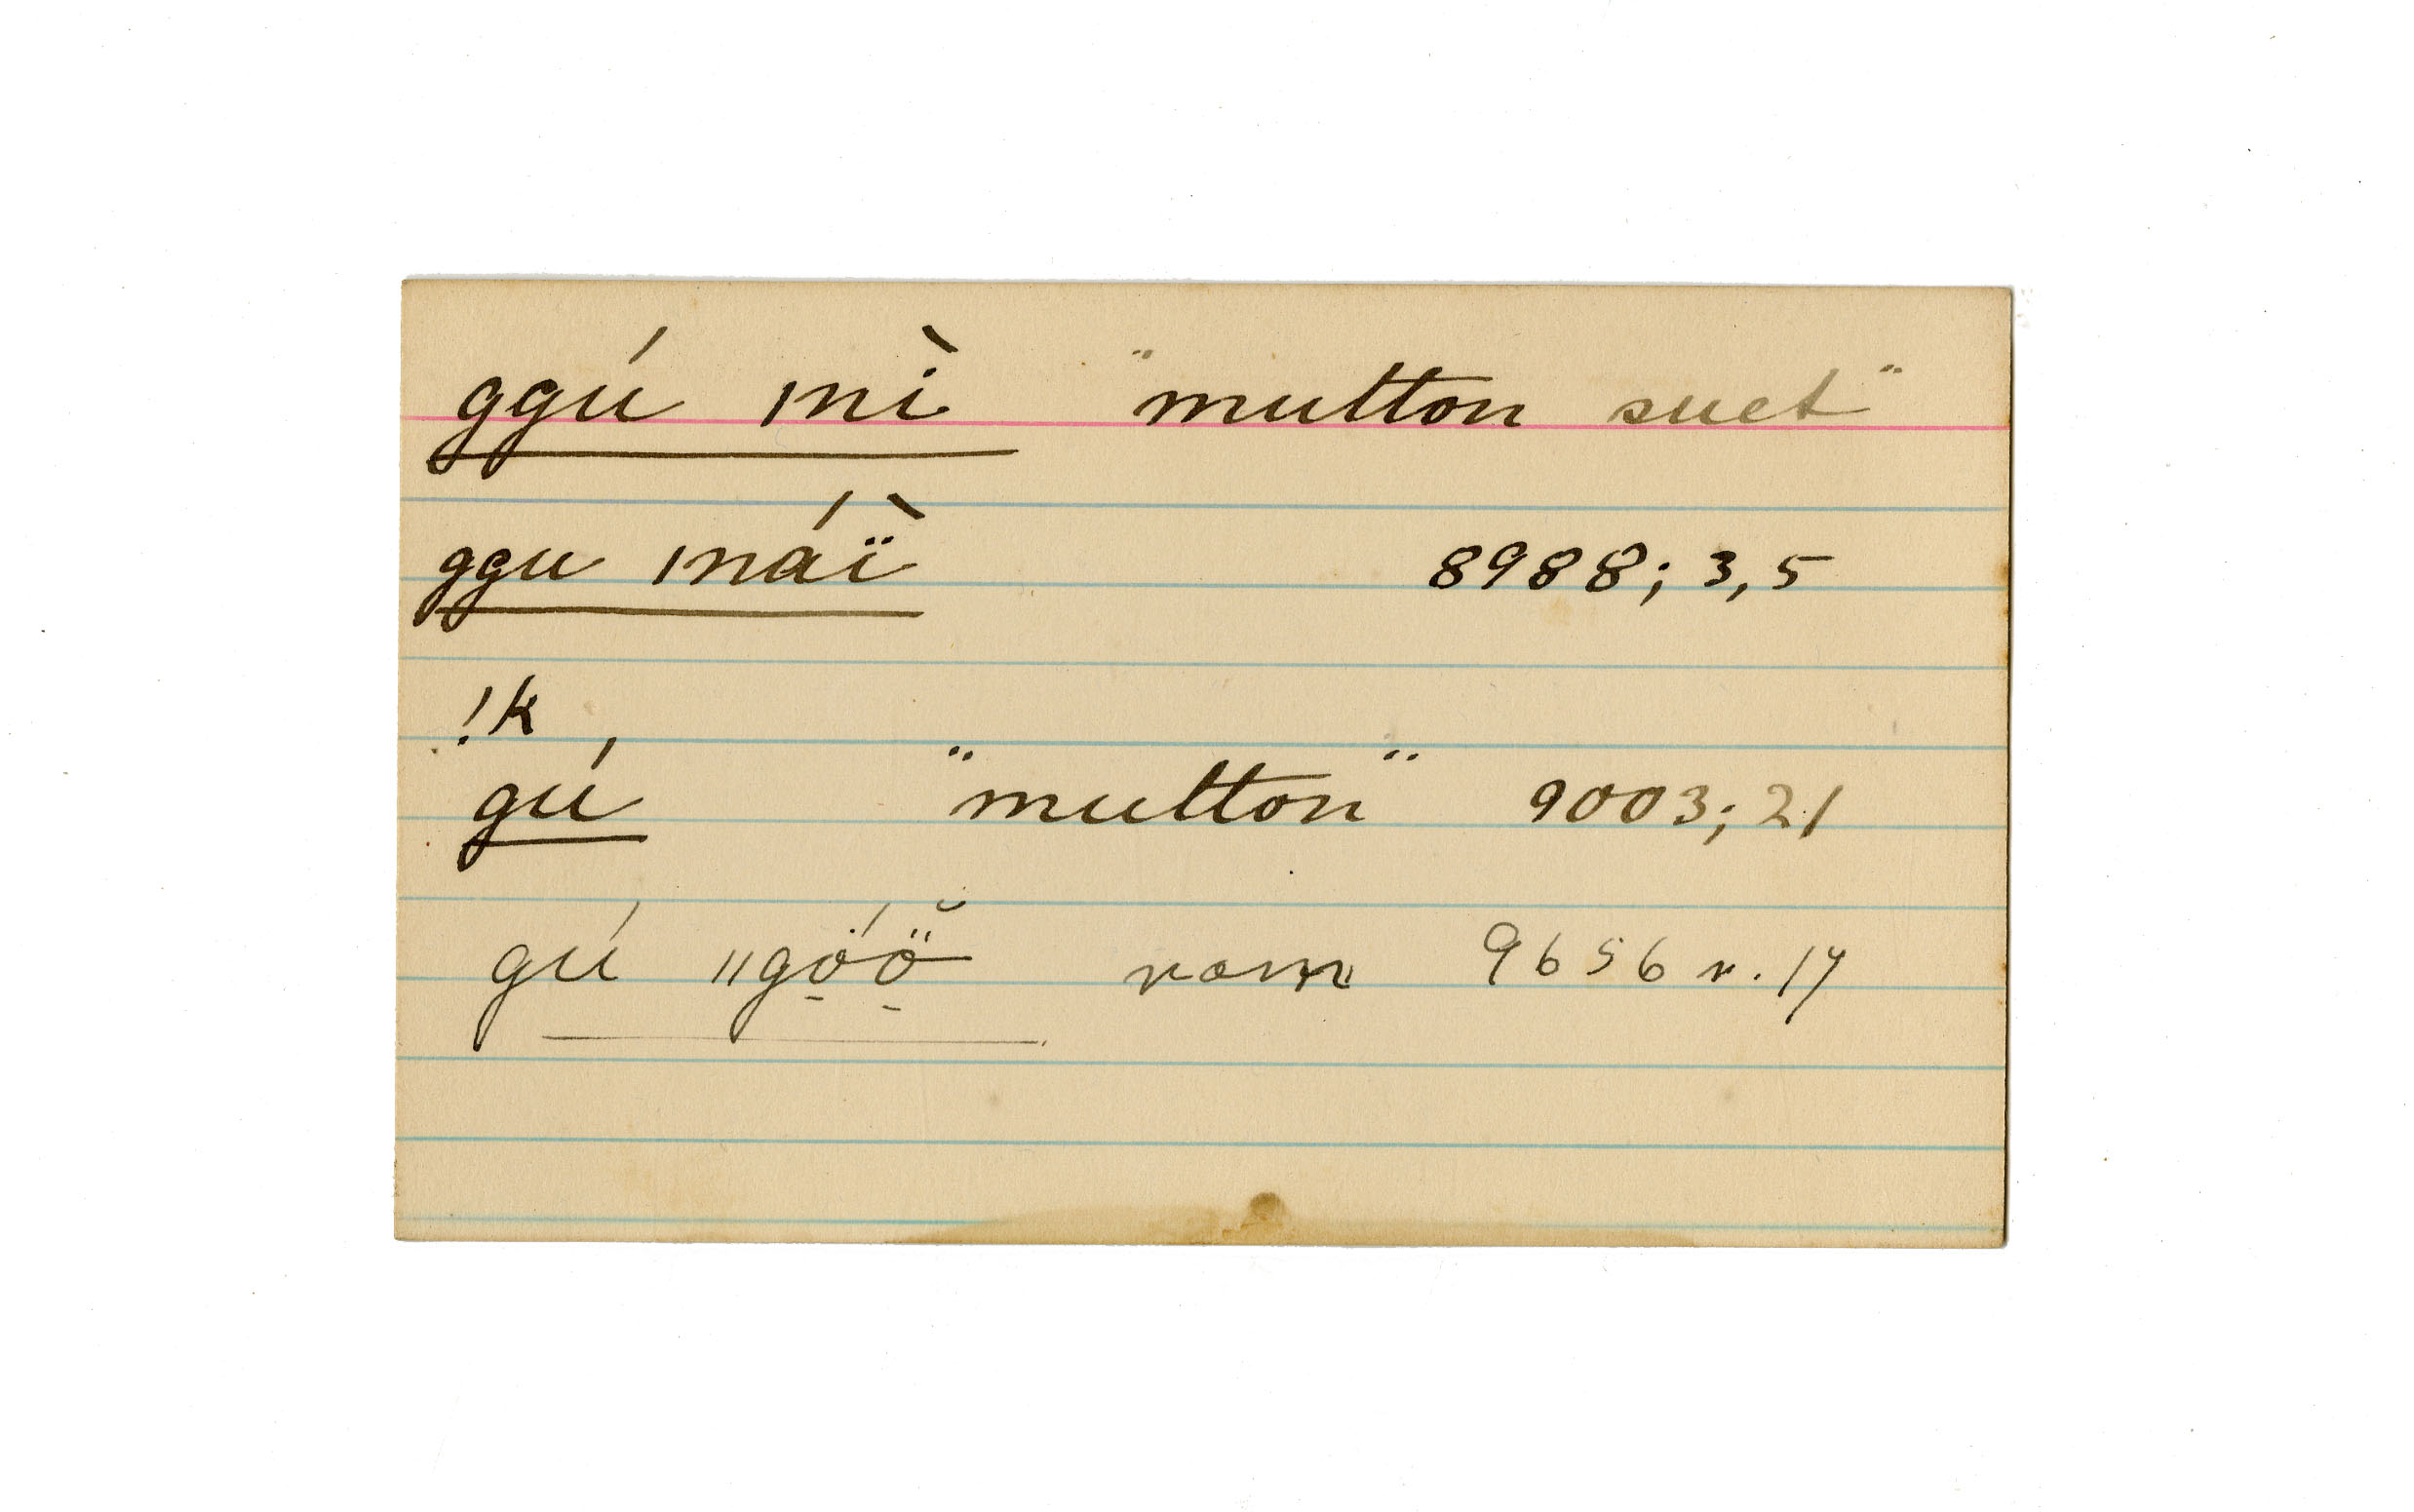 ggú mì "mutton suet"
ggu máï̀ 8988; 3,5
!k
gú "mutton" 9003; 21
gú ‖gö̱́ö̱̆ ram 9656 r. 17